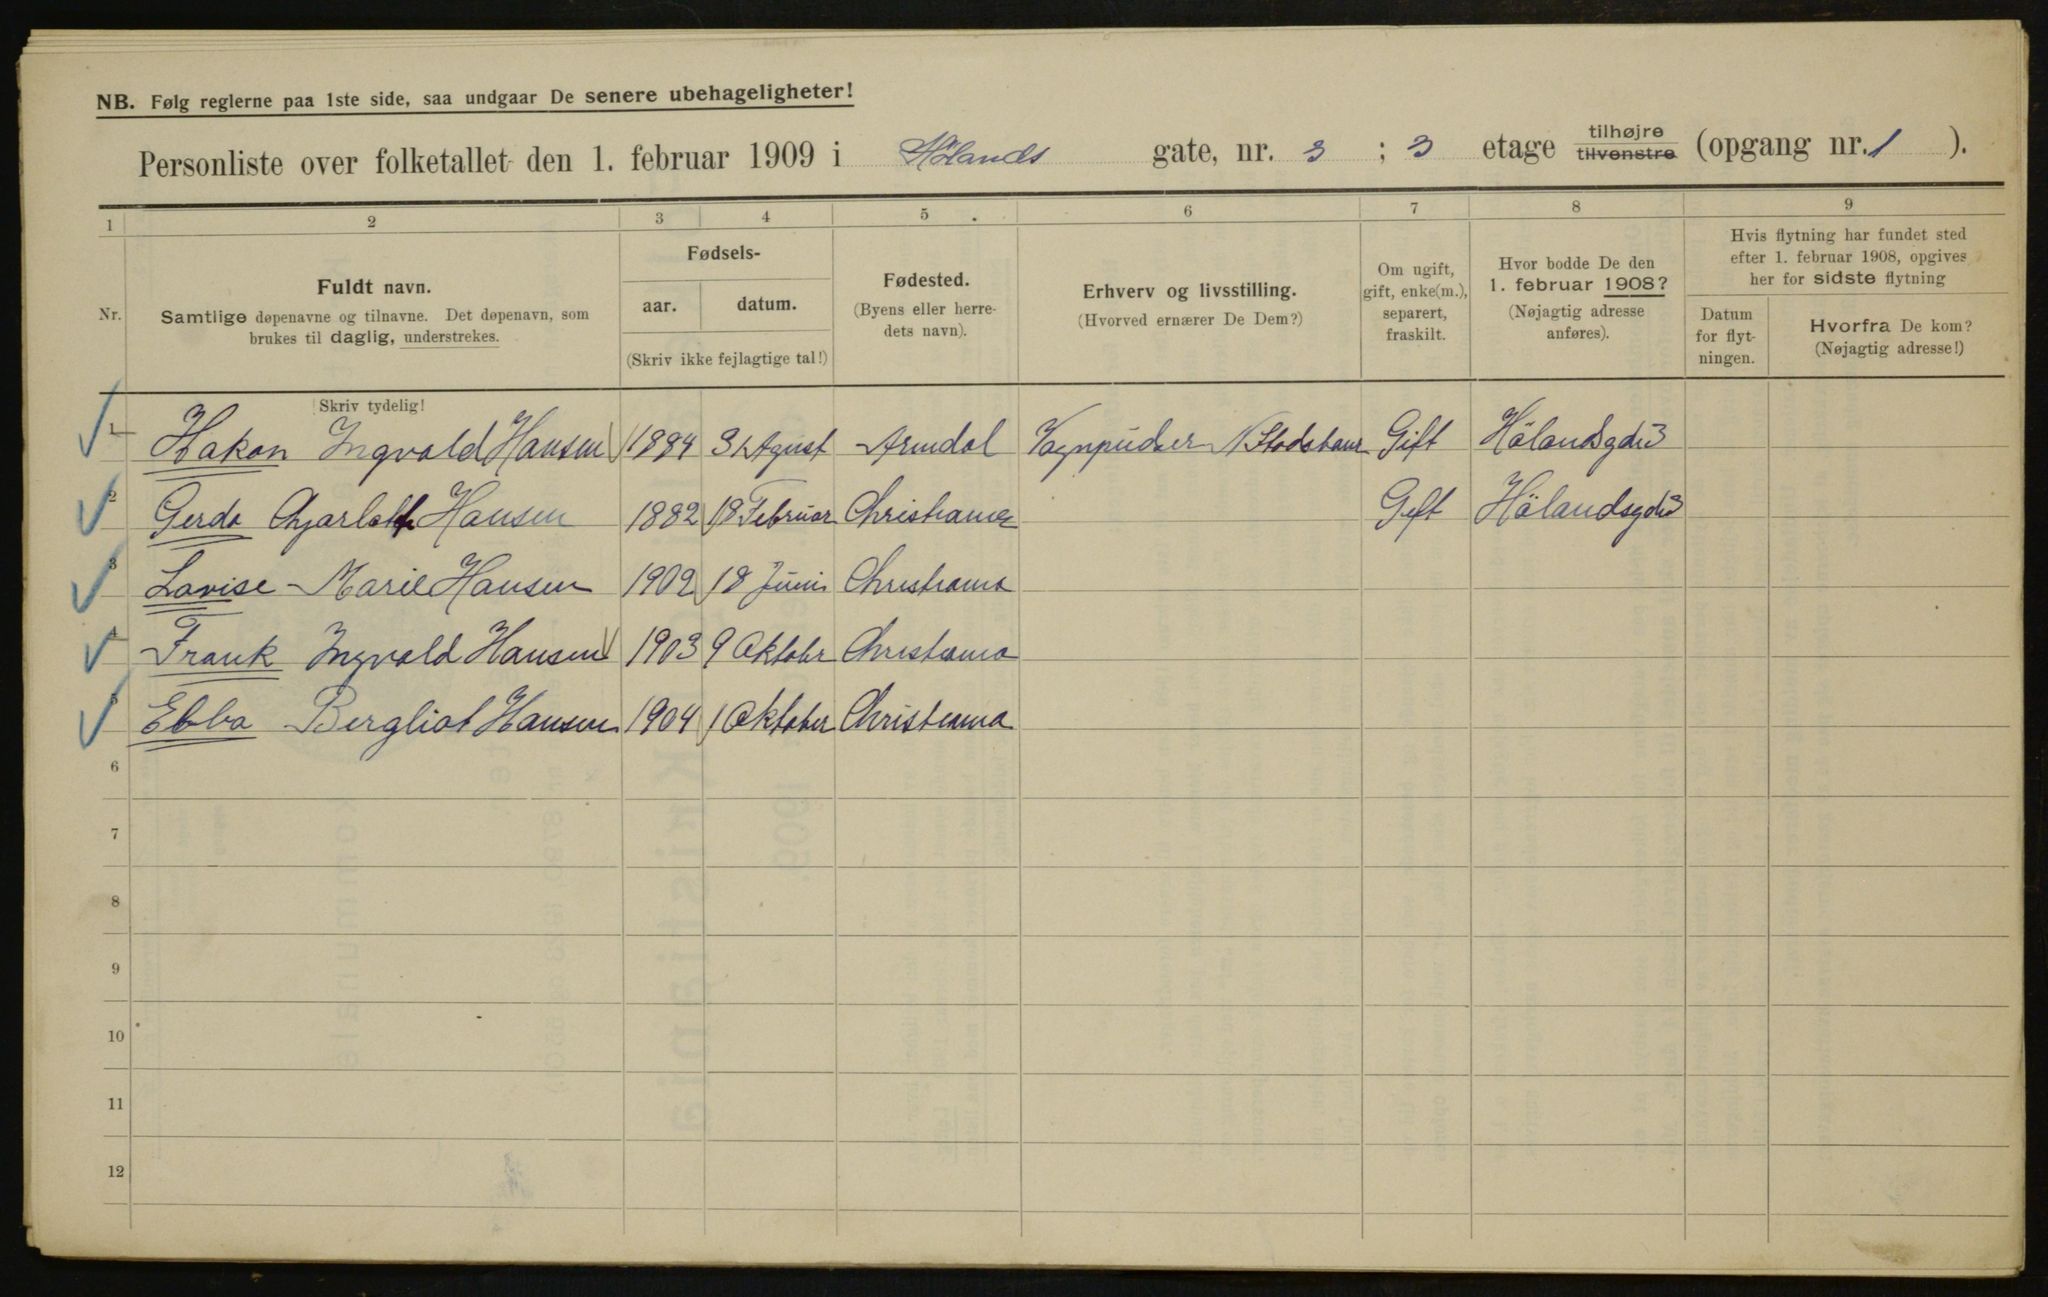 NB. Følg reglerne paa 1ste side, saa undgaar De senere ubehageligheter!
Personliste over folketallet den 1. februar 1909 i Hölands gate, nr. 3 ; 3 etage tilhøjre tilvenstre (opgang nr. 1 ).
1 2 3 4 5 6 7 8 9
Nr.
Fuldt navn.
Samtlige døpenavne og tilnavne. Det døpenavn, som
brukes til daglig, understrekes.
Fødsels-
aar. datum.
(Skriv ikke fejlagtige tal!)
Fødested.
(Byens eller herre-
dets navn).
Erhverv og livsstilling.
(Hvorved ernærer De Dem?)
Om ugift,
gift, enke(m.),
separert,
fraskilt.
Hvor bodde De den
1. februar 1908?
(Nøjagtig adresse
anføres).
Hvis flytning har fundet sted
efter 1. februar 1908, opgives
her for sidste flytning
Datum
for flyt-
ningen.
Hvorfra De kom?
(Nøjagtig adresse!)
Skriv tydelig!
1 Hakon Ingvald Hansen 1884 31 Agust Arendal Vagnpudser Gift Hölandsgd 3
2 Gerda Hansen 1882 18 Februar Christiania Gift Hölandsgd 3
3 Lovise Marie Hansen 1902 18 Juni Christiania
4 Frank Ingvald Hansen 1903 9 Oktobr Christiania
5 Ebba Bergliot Hansen 1904 1 Oktober Christiania
6
7
8
9
10
11
12